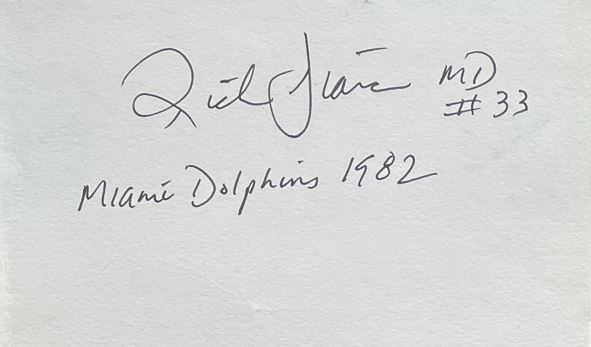 Rich Diana MD
#33
Miami Dolphins 1982